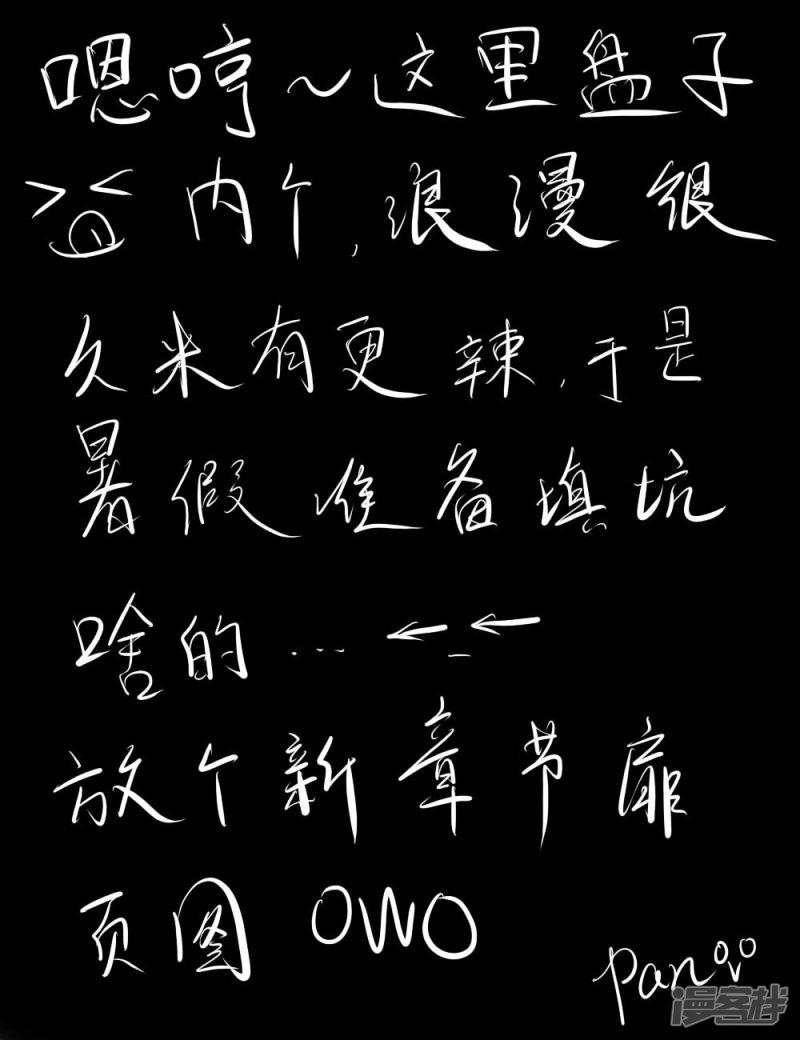 嗯哼～这里盘子
内个,浪漫很
久米有更辣,于是
暑假准备填坑
啥的...←_←
放个新章节扉
页图OWO
Pan
漫客栈